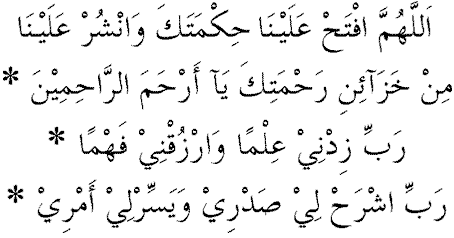 اَللّٰهُمَّ افْتَحْ عَلَيْنَا حِكْمَتَكَ وَانْشُرْ عَلَيْنَا
مِنْ خَزَآئِنِ رَحْمَتِكَ يَآ أَرْحَمَ الرَّاحِمِيْنَ *
رَبِّ زِدْنِيْ عِلْمًا وَارْزُقْنِيْ فَهْمًا *
رَبِّ اشْرَحْ لِيْ صَدْرِيْ وَيَسِّرْلِيْ أَمْرِيْ *